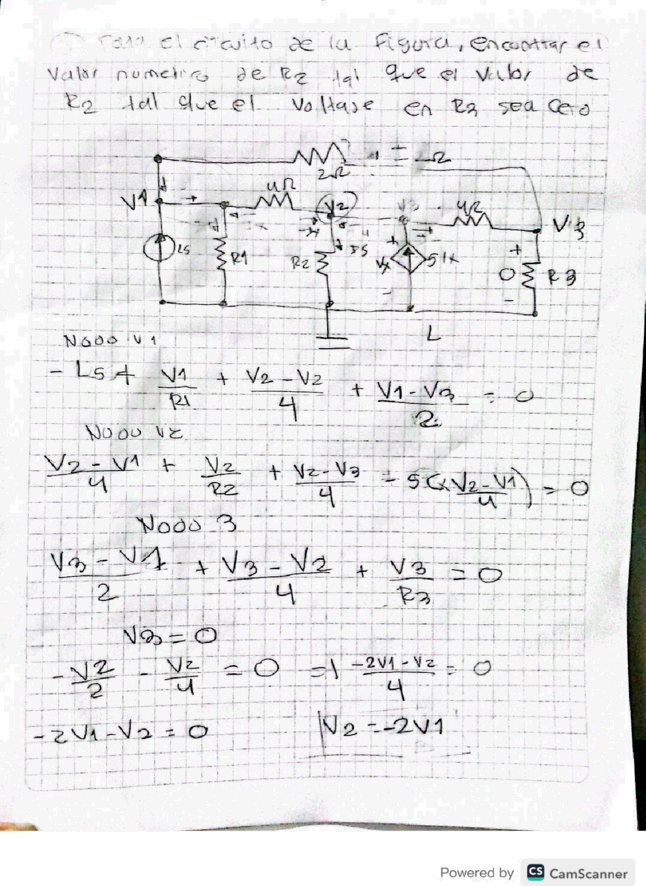 el circuito de la Figura, encontrar el
Valor numerico de R2 tal que el Valor de
R2 tal que el Voltaje en R3 sea Cero
2Ω
4Ω
V1
V2
4Ω
V3
Is
R1
R2
Vx
5Ix
0
R3
+
-
L
Nodo V1
- Is + V1/R1 + V2 - V2/4 + V1 - V3/2 = 0
Nodo V2
V2 - V1/4 + V2/R2 + V2 - V3/4 - 5(V2 - V1/4) = 0
Nodo 3
V3 - V1/2 + V3 - V2/4 + V3/R3 = 0
V3 = 0
- V2/2 - V2/4 = 0 = -2V1 - V2/4 = 0
-2V1 - V2 = 0 V2 = -2V1
Powered by CS CamScanner